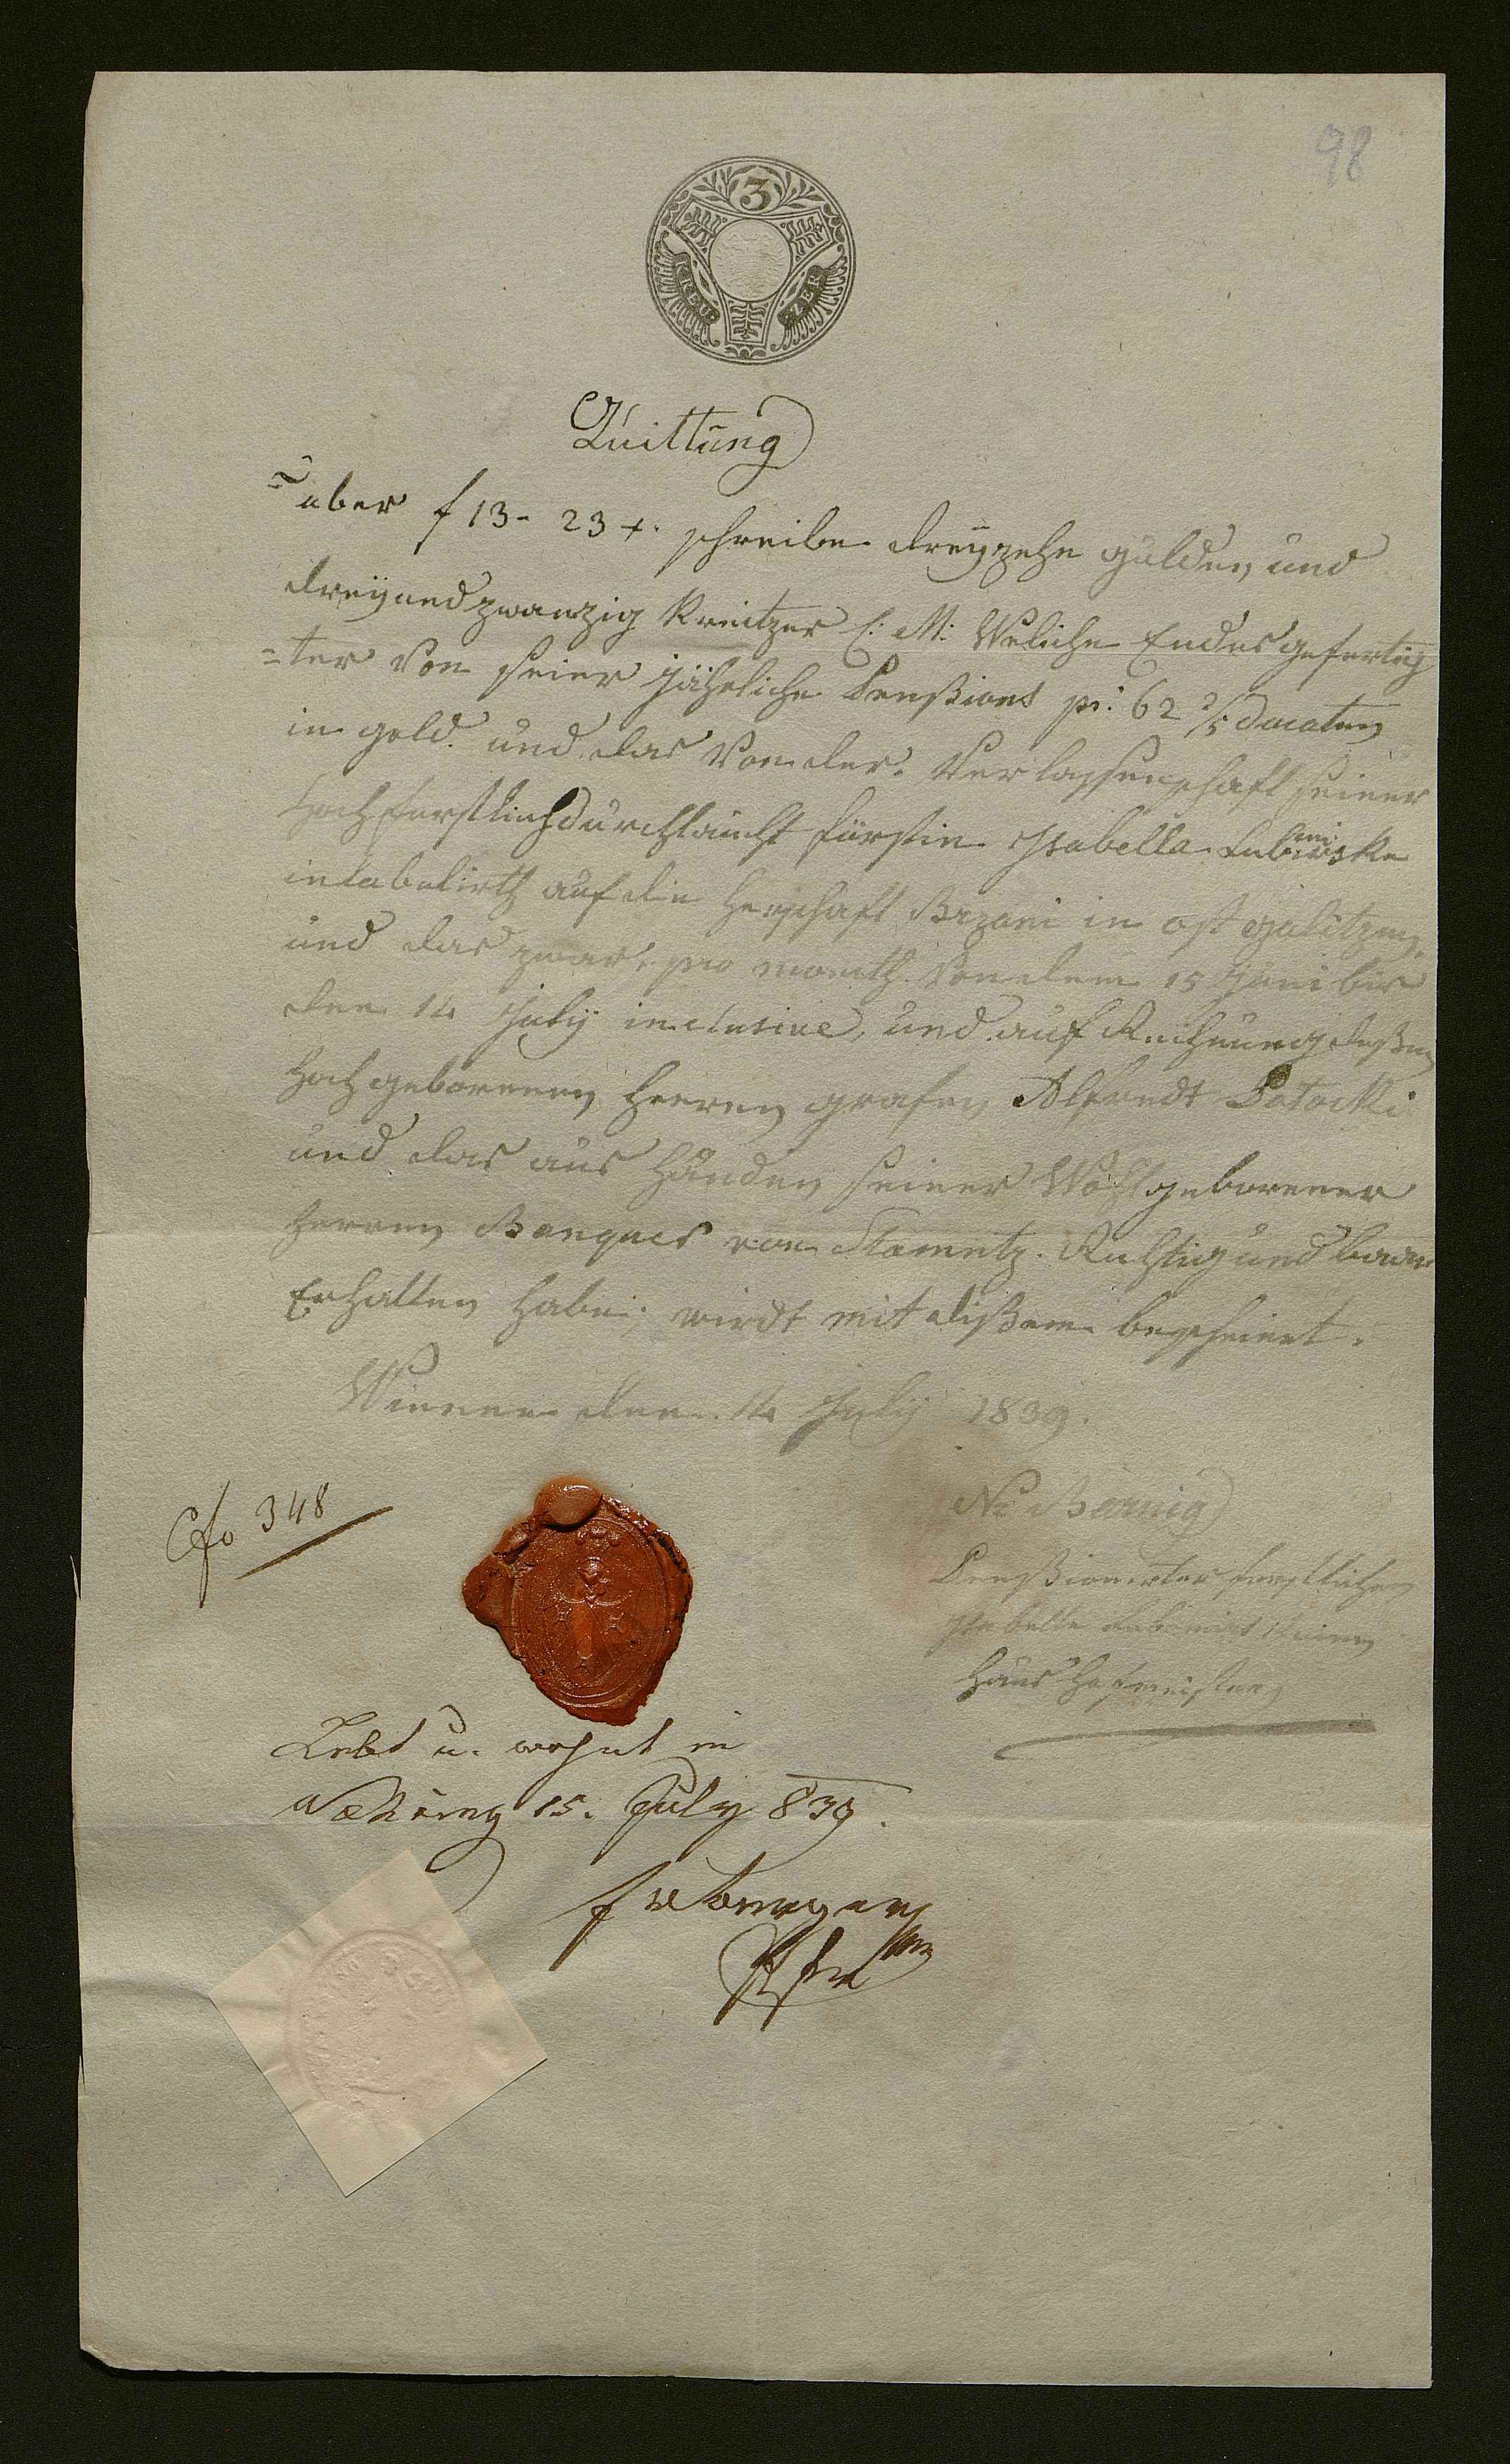 98
3
KREU ZER
Quittung
über f 13 - 23 x. schreibe dreyzehn gulden und
dreyundzwanzig Kreitzer C: M: Weliche Endes gefertig
=ter von seiner jährliche Penßions pr: 62 2/5 Ducaten
in gold. und das von der Verlassenschaft seiner
Hochfürstlich durchlaucht fürstin Isabella Lubomirska
intabulirth auf die Herschaft Brzani in ost galitzen,
und das zwar, pro month. von dem 15 Juni bis
den 14 July inclusive, und auf Rechnung deßen
Hochgeborenen Herren grafen Alfredt Potocki
und das aus Händen seiner Wohlgeborener
Herren Banques von Stametz. Richtig und baar
Erhalten habe, wirdt mit dißem bescheint.
Wienn den 14 July 1839.
Cfo 348
Penßionirter fürstlicher
Isabella Lubomirskischen
Haus Hofmeister
Lebt u. wohnt in
15. July 839.